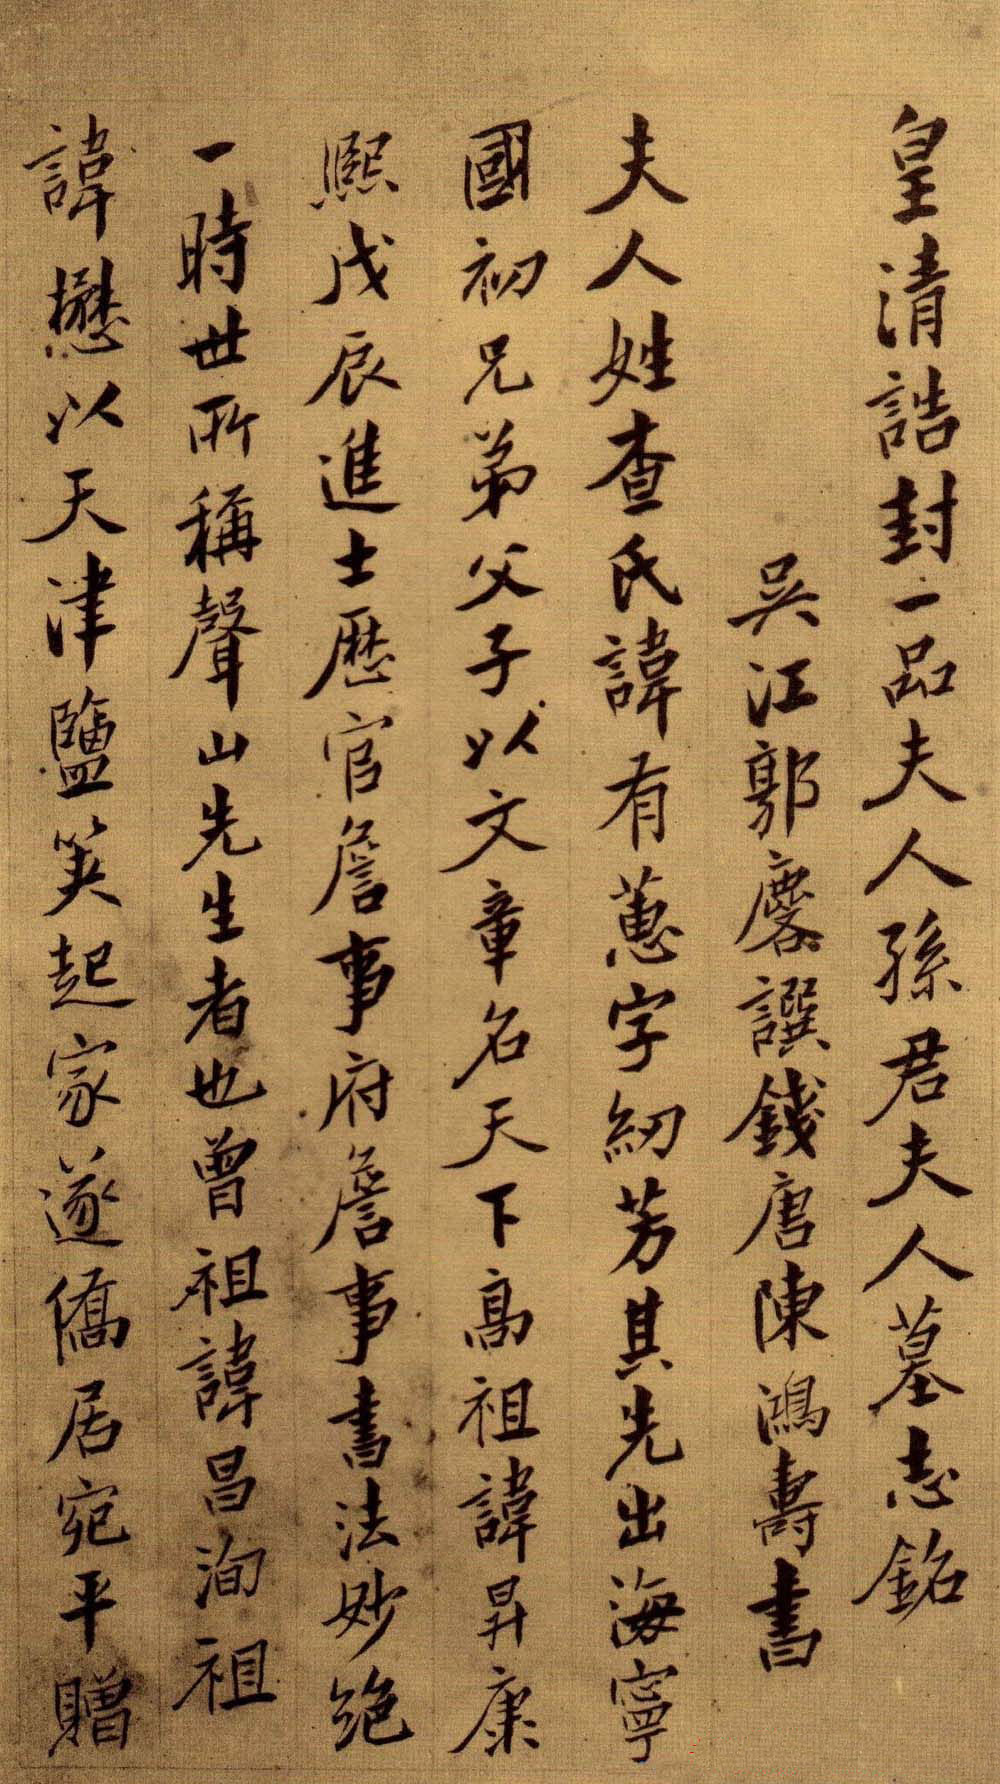 皇清誥封一品夫人孫君夫人墓志銘
吳江郭麐譔錢唐陳鴻壽書
夫人姓查氏諱有蕙字紉芳其先出海寧
國初兄弟父子以文章名天下高祖諱昇康
熙戊辰進士歷官詹事府詹事書法妙絶
一時世所稱聲山先生者也曾祖諱昌洵祖
諱懋以天津鹽筴起家遂僑居宛平贈